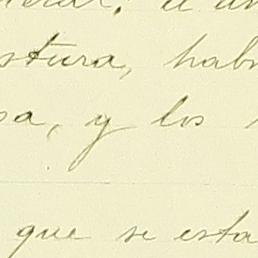 stura, hab
sa, y los
que se esta